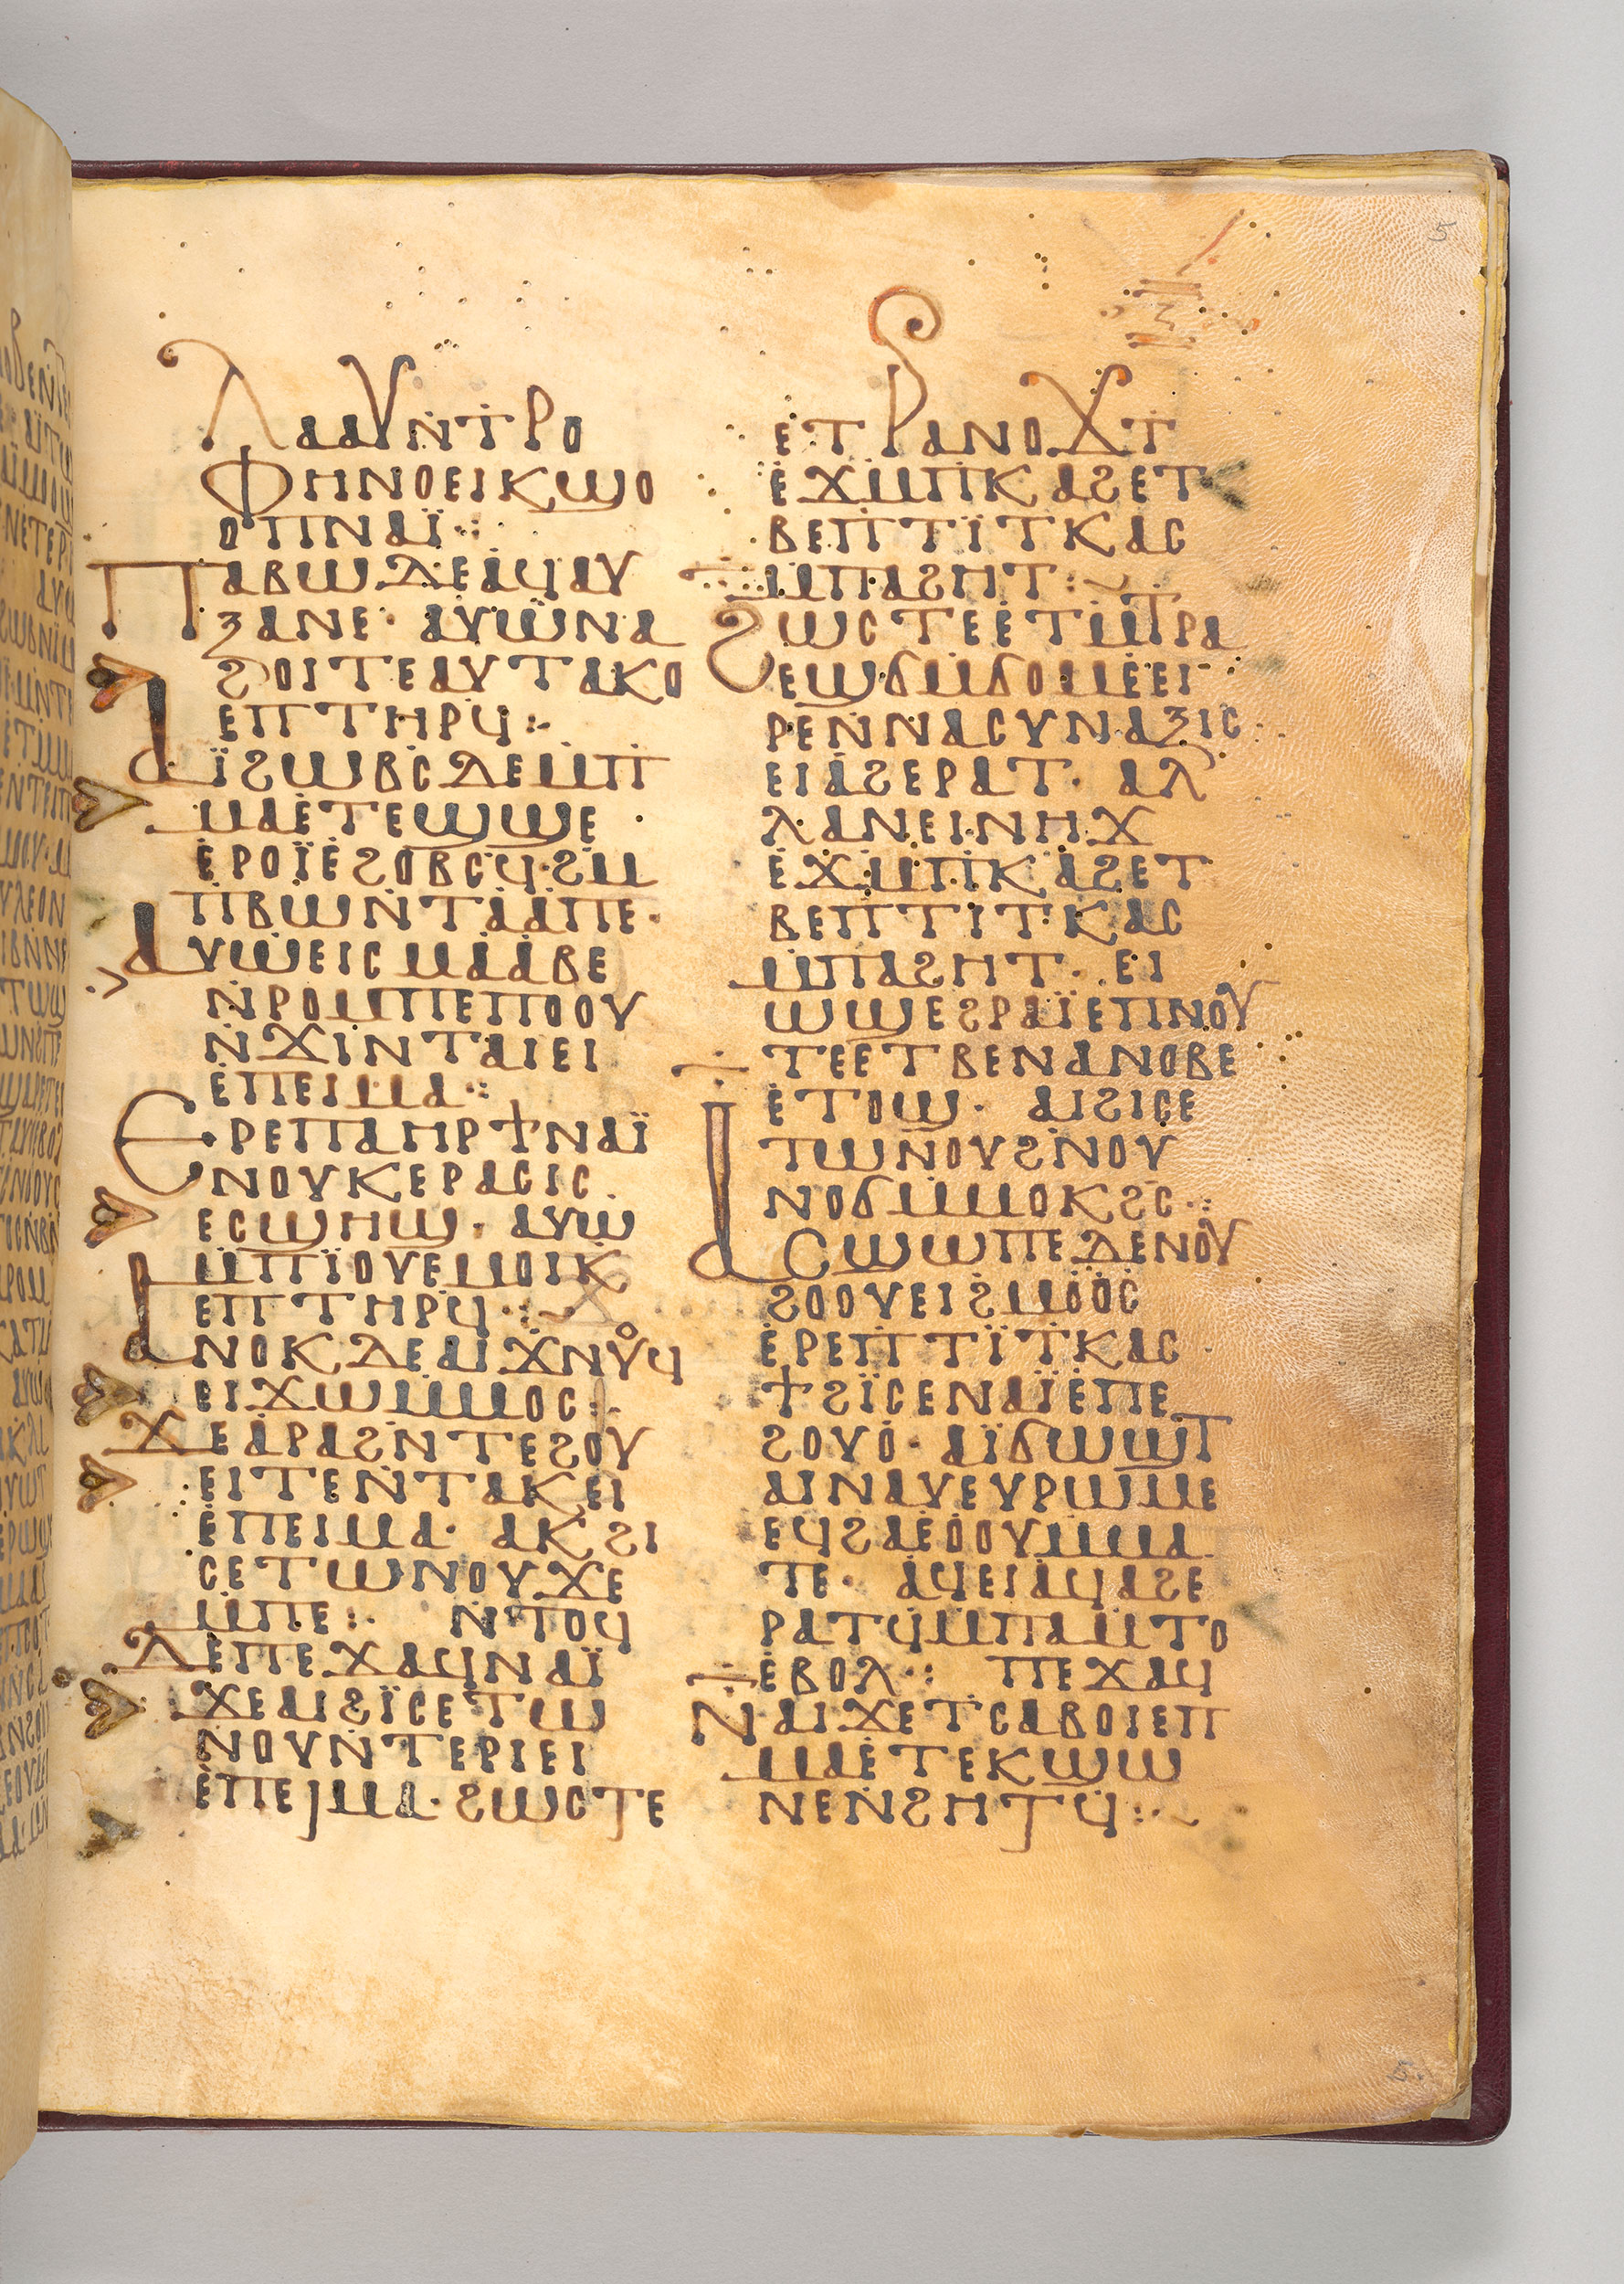 5
ⲗⲁⲁⲩⲛⲧⲣⲟ
ⲫⲏⲛⲟⲉⲓⲕϣⲟ
ⲟⲡⲛⲁⲓ̈⁖
ⲡⲁⲃⲱⲇⲉⲁϥⲁⲩ
ⲝⲁⲛⲉ· ⲁⲩⲱⲛⲁ
ϩⲟⲓⲧⲉⲁⲩⲧⲁⲕⲟ
ⲉⲡⲧⲏⲣϥ:-
ⲁⲓ̈ϩⲱⲃⲥⲇⲉⲙⲡ
ⲙⲁⲉⲧⲉϣϣⲉ
ⲉⲣⲟⲓ̈ⲉϩⲟⲃⲥϥ·ϩⲙ
ⲡⲃⲱⲛⲧⲁⲁⲡⲉ·
ⲁⲩⲱⲉⲓⲥⲙⲁⲁⲃⲉ
ⲛ̇ⲣⲟⲙⲡⲉⲡⲟⲟⲩ
ⲛ̇ϫⲓⲛⲧⲁⲓⲉⲓ
ⲉⲡⲉⲓⲙⲁ⁖
ⲉⲣⲉⲡⲁⲏⲣⲡϯⲛⲁⲓ̈
ⲛⲟⲩⲕⲉⲣⲁⲥⲓⲥ
ⲉⲥϣⲏϣ· ⲁⲩⲱ
ⲙⲡⲓ̈ⲟⲩⲉⲙⲟⲉⲓⲕ
ⲉⲡⲧⲏⲣϥ·:
ⲁⲛⲟⲕⲇⲉⲁⲓϫⲛⲟⲩϥ
ⲉⲓϫⲱⲙⲙⲟⲥ:·
ϫⲉⲁⲣⲁϩⲛⲧⲉϩⲟⲩ
ⲉⲓⲧⲉⲛⲧⲁⲕⲉⲓ
ⲉⲡⲉⲓⲙⲁ· ⲁⲕϩⲓ
ⲥⲉⲧⲱⲛⲟⲩϫⲉ
ⲙⲡⲉ:· ⲛⲧⲟϥ
ⲇⲉⲡⲉϫⲁϥⲛⲁⲓ̈
ϫⲉⲁⲓϩⲓ̈ⲥⲉⲧⲱ
ⲛⲟⲩⲛⲧⲉⲣⲓⲉⲓ
ⲉⲡⲉⲓⲙⲁ·ϩⲱⲥⲧⲉ
ⲉⲧⲣⲁⲛⲟϫⲧ
ⲉϫⲙⲡⲕⲁϩⲉⲧ
ⲃⲉⲡⲧⲓ̈ⲧⲕⲁⲥ
ⲙⲡⲁϩⲏⲧ:~
ϩⲱⲥⲧⲉⲉⲧⲙⲧⲣⲁ
ⲉϣϭⲙϭⲟⲙⲉⲉⲓ
ⲣⲉⲛⲛⲁⲥⲩⲛⲁⲝⲓⲥ
ⲉⲓⲁϩⲉⲣⲁⲧ· ⲁⲗ
ⲗⲁⲛⲉⲓⲛⲏϫ
ⲉϫⲙⲡⲕⲁϩⲉⲧ
ⲃⲉⲡⲧⲓⲧⲕⲁⲥ
ⲙⲡⲁϩⲏⲧ· ⲉⲓ
ⲱϣⲉϩⲣⲁⲓ̈ⲉⲡⲛⲟⲩ
ⲧⲉⲉⲧⲃⲉⲛⲁⲛⲟⲃⲉ
ⲉⲧⲟϣ· ⲁⲓϩⲓⲥⲉ
ⲧⲱⲛⲟⲩϩⲛⲟⲩ
ⲛⲟϭⲙⲙⲟⲕϩⲥ⁖
ⲁⲥϣⲱⲡⲉⲇⲉⲛⲟⲩ
ϩⲟⲟⲩⲉⲓϩⲙⲟⲟⲥ
ⲉⲣⲉⲡⲧⲓ̈ⲧⲕⲁⲥ
ϯϩⲓ̈ⲥⲉⲛⲁⲓ̈ⲉⲡⲉ
ϩⲟⲩⲟ· ⲁⲓ̈ϭⲱϣⲧ
ⲁⲓⲛⲁⲩⲉⲩⲣⲱⲙⲉ
ⲉϥϩⲁⲉⲟⲟⲩⲙⲙⲁ
ⲧⲉ· ⲁϥⲉⲓⲁϥⲁϩⲉ
ⲣⲁⲧϥⲙⲡⲁⲙⲧⲟ
ⲉⲃⲟⲗ·: ⲡⲉϫⲁϥ
ⲛⲁⲓϫⲉⲧⲥⲁⲃⲟⲓⲉⲡ
ⲙⲁⲉⲧⲉⲕϣⲱ
ⲛⲉⲛϩⲏⲧϥ:·~